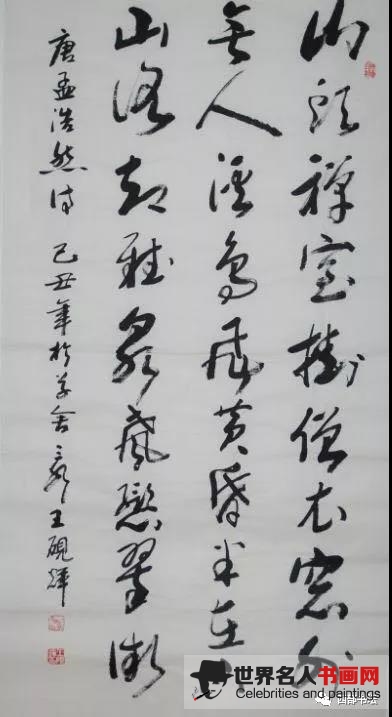 山頭禪室掛僧衣窓外
無人溪鳥飛黄昏半在下
山路却聽泉聲戀翠微
唐孟浩然诗 己丑年於草舍 王硯輝
世界名人书画网
Celebrities and paintings